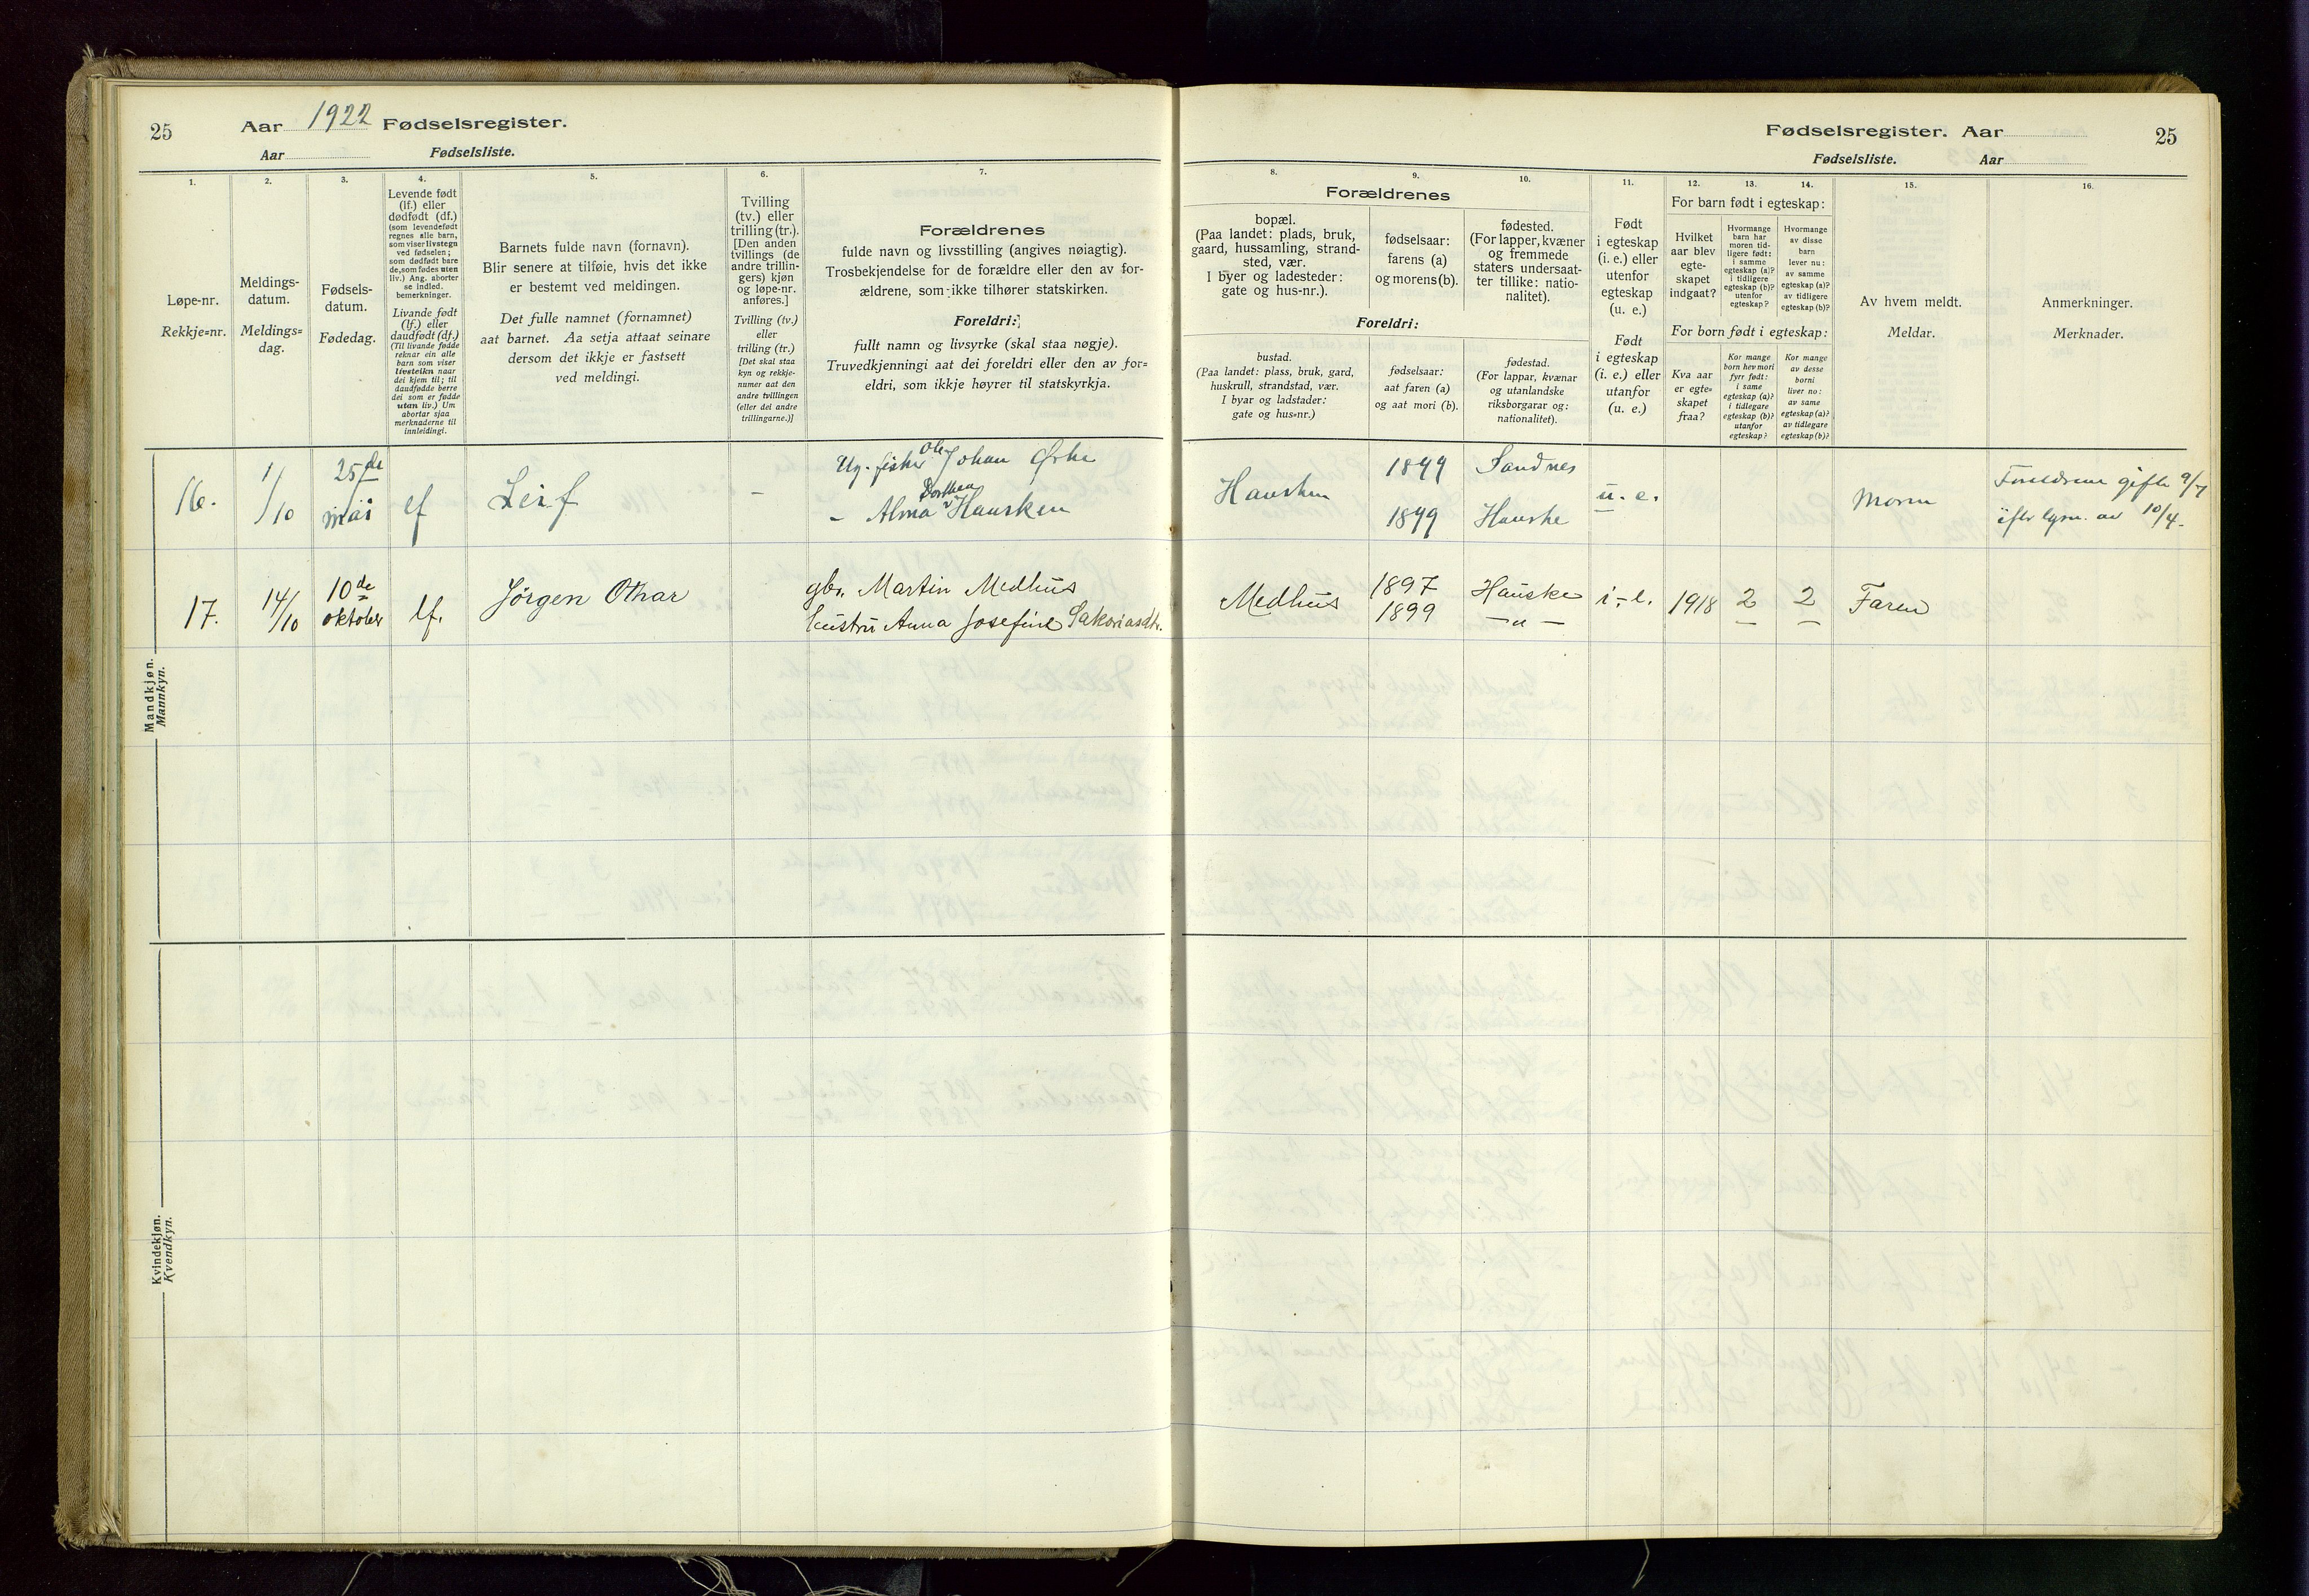 25
Aar 1922 Fødselsregister.
Aar Fødselsliste.
1.
2.
3.
4.
5.
6.
7.
Løpe-nr.
Rekkje=nr.
Meldings-
datum.
Meldings=
dag.
Fødsels-
datum.
Fødedag.
Levende født
(lf.) eller
dødfødt (df.)
(som levendefødt
regnes alle barn,
som viser livstegn
ved fødselen;
som dødfødt bare
de, som fødes uten
liv.) Ang. aborter
se indled.
bemerkninger.
Livande født
(lf.) eller
daudfødt (df.)
(Til livande fødde
reknar ein alle
barn som viser
livsteikn naar
dei kjem til; til
daudfødde berre
dei som er fødde
utan liv.) Um
abortar sjaa
merknaderne til
innleidingi.
Barnets fulde navn (fornavn).
Blir senere at tilføie, hvis det ikke
er bestemt ved meldingen.
Det fulle namnet (fornamnet)
aat barnet. Aa setja attaat seinare
dersom det ikkje er fastsett
ved meldingi.
Tvilling
(tv.) eller
trilling (tr.).
[Den anden
tvillings (de
andre trillin-
gers) kjøn
og løpe-nr.
anføres.]
Tvilling (tv.)
eller
trilling (tr.)
[Det skal staa
kyn og rekkje-
numer aat den
andre tvillingen
(eller dei andre
trillingarne.)]
Forældrenes
fulde navn og livsstilling (angives nøiagtig).
Trosbekjendelse for de forældre eller den av for-
ældrene, som ikke tilhører statskirken.
Foreldri:
fullt namn og livsyrke (skal staa nøgje).
Truvedkjenningi aat dei foreldri eller den av for=
eldri, som ikkje høyrer til statskyrkja.
Mandkjøn.
Mannkyn.
16.
1/10
25de
mai
lf
Leif
-
Ug. fisker Ole Johan
- Alma Dorthea Hausken
17.
14/10
10de
oktober
lf.
Jörgen Othar
gbr. Martin Medhus
hustru Anna Josefine Sakariasdtr.
Kvindekjøn.
Kvendkyn.
Fødselsregister. Aar
25
Fødselsliste. Aar
8.
9.
10.
11.
12.
13.
14.
15.
16.
Forældrenes
bopæl.
(Paa landet: plads, bruk,
gaard, hussamling, strand-
sted, vær.
I byer og ladesteder:
gate og hus-nr.).
fødselsaar:
farens (a)
og morens (b).
fødested.
(For lapper, kvæner
og fremmede
staters undersaat-
ter tillike: natio-
nalitet).
Foreldri:
bustad.
(Paa landet: plass, bruk, gard,
huskrull, strandstad, vær.
I byar og ladstader:
gate og hus=nr.)
fødselsaar:
aat faren (a)
og aat mori (b).
fødestad.
(For lappar, kvænar
og utanlandske
riksborgarar og:
nationalitet).
Født
i egteskap
(i. e.) eller
utenfor
egteskap
(u. e.)
Født
i egteskap
(i. e.) eller
utanfor
(u. e.)
For barn født i egteskap:
Hvilket
aar blev
egte-
skapet
indgaat?
Hvormange
barn har
moren tid-
ligere født:
i samme
egteskap (a)?
i tidligere
egteskap (b)?
utenfor
egteskap?
Hvormange
av disse
barn
lever nu:
av samme
egteskap (a)?
av tidligere
egteskap (b)?
For born født i egteskap:
Kva aar
er egte=
skapet
fraa?
Kor mange
born hev mori
fyrr født:
i same
egteskap (a)?
i tidlegare
egteskap (b)?
utanfor
egteskap?
Kor mange
av desse
borni
liver no:
av same
egteskap (a)?
av tidlegare
egteskap (b)?
Av hvem meldt.
Meldar.
Anmerkninger.
Merknader.
Hausken
1899
1899
Sandnes
Hauske
u. e.
Moren
Foreldrene gifte 9/7
efter lysn. av 10/4.
Medhus
1897
1899
Hauske
— " —
i. e.
1918
2
2
Faren